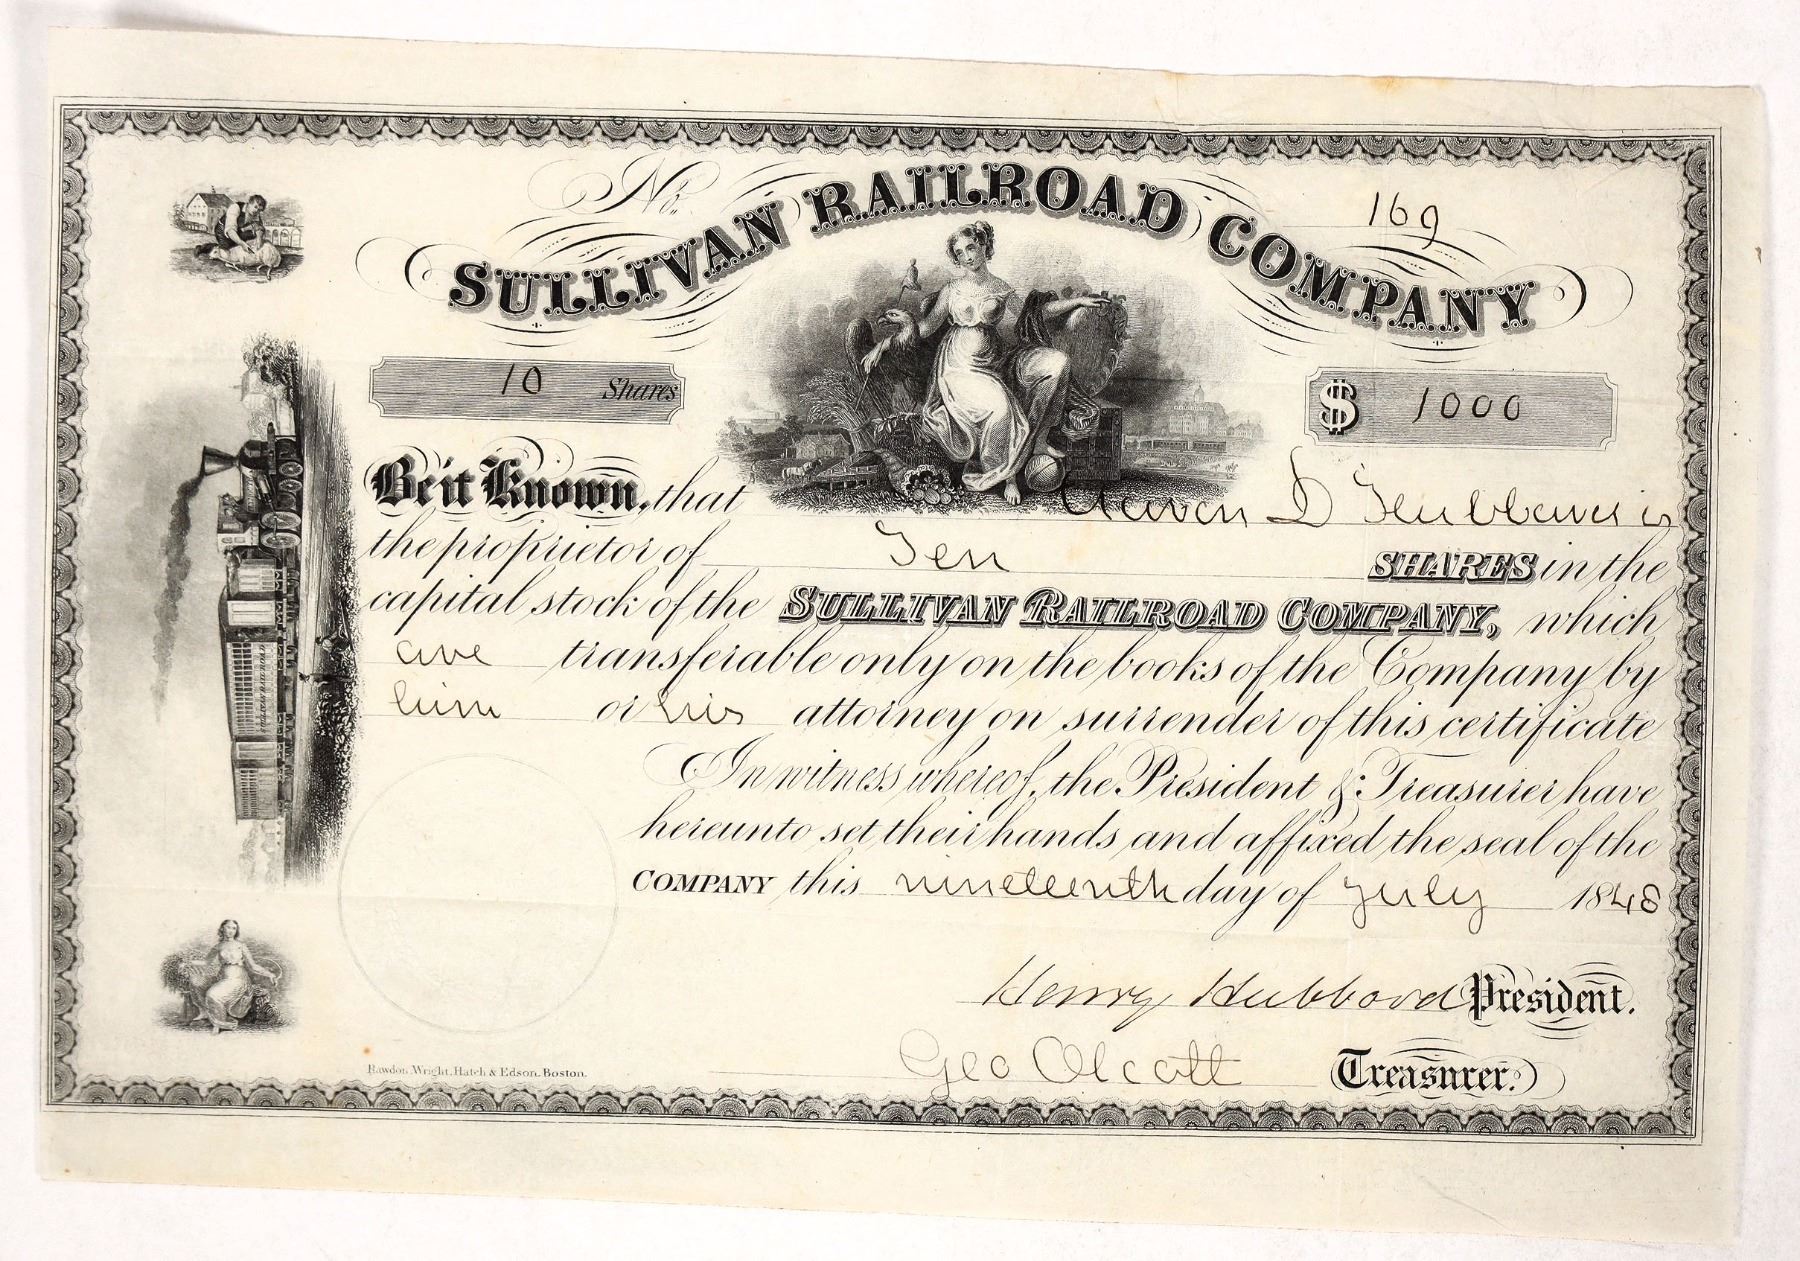 No. 169
SULLIVAN RAILROAD COMPANY
10 Shares
$ 1000
Be it Known, that Aaron D Hubbard is
the proprietor of Ten SHARES in the
capital stock of the SULLIVAN RAILROAD COMPANY, which
are transferable only on the books of the Company by
him or his attorney on surrender of this certificate
In witness whereof, the President & Treasurer have
hereunto set their hands and affixed the seal of the
COMPANY this nineteenth day of July 1848
Henry Hubbard President.
Geo Olcott Treasurer.
Rawdon, Wright, Hatch & Edson, Boston.